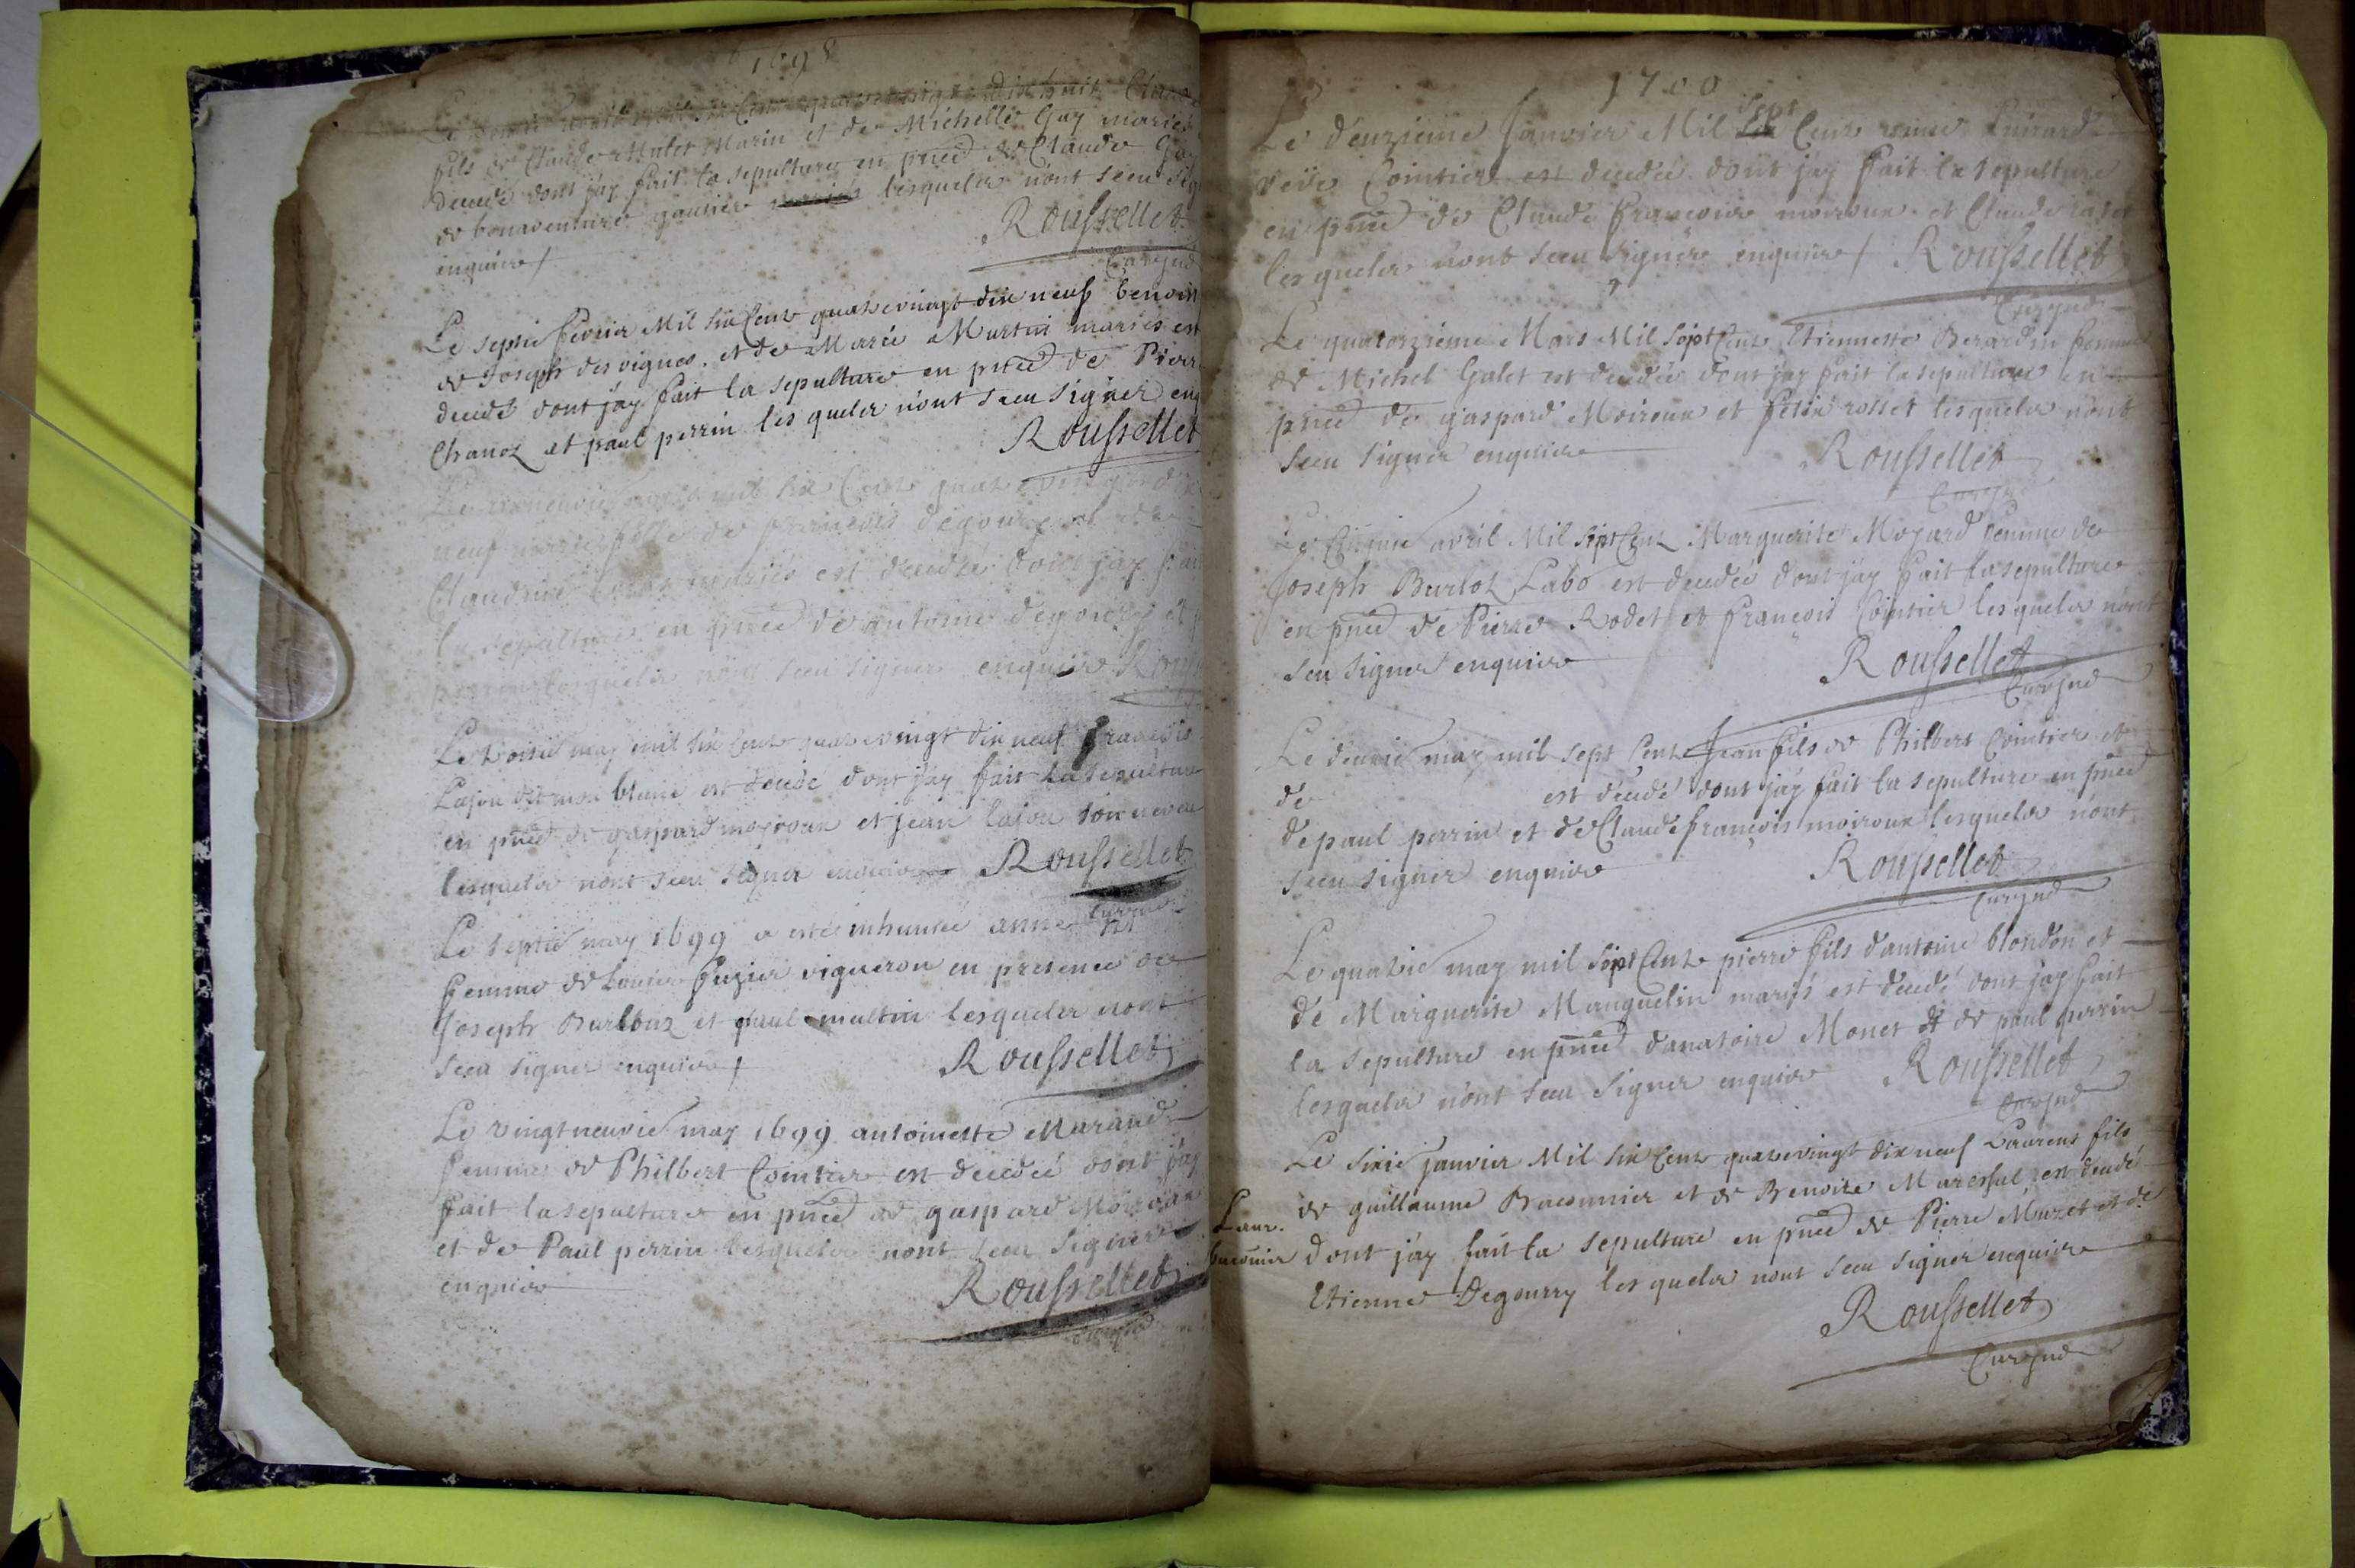 1698
mil six Cent quatrevingt dix huit Claude
fils de Claude Mulet Marin et de Michelle Guy mariés
decedé dont jay fait la sepulture en pnce de Claude
de bonaventure gautier lesquels n'ont sceu
enquire /
Roussellet
Curé
Le septie fevrier Mil six Cent quatrevingt dix neuf benoit
de Joseph des vignes et de Marie Martin mariés est
decedé dont jay fait la sepulture en pnce de Pierre
Chanoz et paul perrin les quels n'ont sceu signer enq
Roussellet
Le mil six Cent quatrevingt dix
neuf marie fille de francois degourry et de
Claudine mariés est decedée dont jay fait
la sepulture en pnce de antoine degourry et
perrin lesquels n'ont sceu signer enquire Rouss
Le troisie may mil six Cent quatrevingt dix neuf francois
Lajou dit mon blanc est decedé dont jay fait la sepulture
en pnce de gaspard moyroux et jean lajou son neveu
lesquels n'ont sceu signer enquire Roussellet
Curé
Le septie may 1699 a esté inhumée anne
femme de Louis fuzier vigneron en presence de
Joseph Burloz et paul multin lesquels n'ont
sceu signer enquire /
Roussellet
Le vingtneuvie may 1699 antoinette Marand
femme de Philbert Cointier est decedée dont jay
fait la sepulture en pnce de gaspard Moiroux
et de Paul perrin lesquels n'ont sceu signer
enquire
Roussellet
1700
Le deuxieme Janvier Mil Sept Cent
veuve Cointier est decedée dont jay fait la sepulture
en pnce de Claude francois moiroux et Claude
lesquels n'ont sceu signer enquire / Roussellet
Curé
Le quatorzieme Mars Mil Sept Cent Etiennette Berardin femme
de Michel Galet est decedée dont jay fait la sepulture en
pnce de gaspard Moiroux et felix rosset lesquels n'ont
sceu signer enquire
Roussellet
Curé
Le Cinquie avril Mil Sept Cent Marguerite Mojard femme de
Joseph Burloz Labo est decedée dont jay fait la sepulture
en pnce de Pierre Rodet et françois Cointier lesquels n'ont
sceu signer enquire
Roussellet
Curé
Le deuxie may mil sept Cent Jean fils de Philbert Cointier et
de est decedé dont jay fait la sepulture en pnce
de paul perrin et de Claude françois moiroux lesquels n'ont
sceu signer enquire
Roussellet
Curé
Le quatrie may mil Sept Cent pierre fils d'antoine blondon et
de Marguerite Manguelin mariés est decedé dont jay fait
la sepulture en pnce d'anatoire Monet et de paul perrin
lesquels n'ont sceu signer enquire Roussellet
Curé
Le sixie janvier Mil six Cent quatrevingt dix neuf Laurens fils
de guillaume Baconnier et de Benoite Mareschal est decedé
Laur.
baconnier
dont jay fait la sepulture en pnce de Pierre Muzet et de
Etienne Degourry les quels n'ont sceu signer enquire
Roussellet
Curé